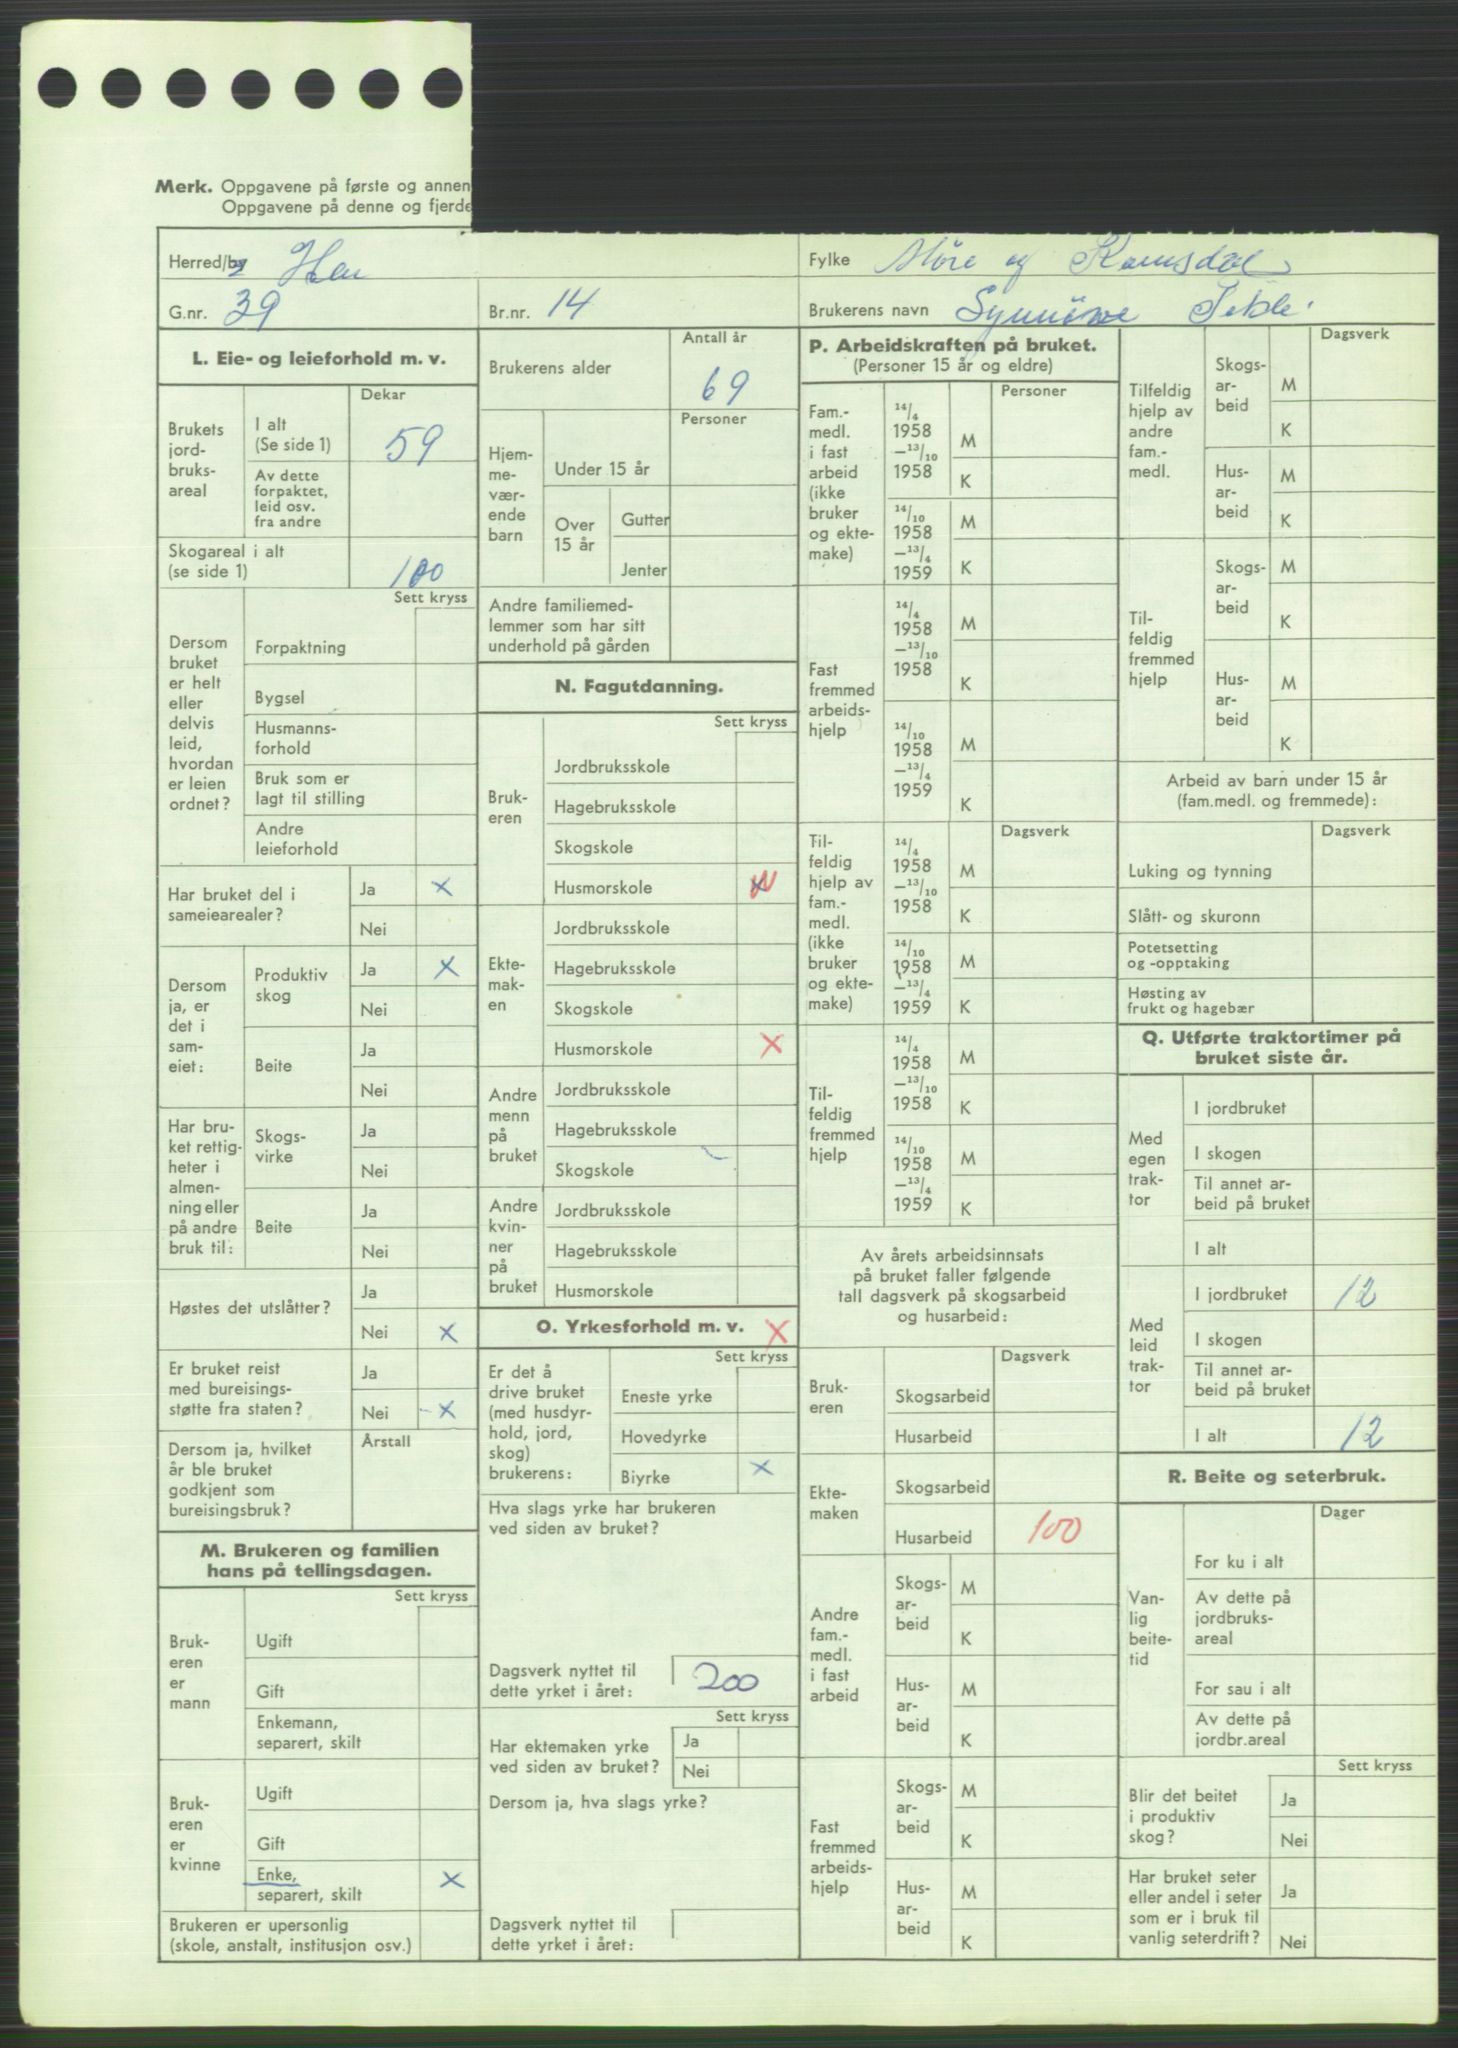 Merk. Oppgavene på første og annen
Oppgavene på denne og fjerde
Herred/by Hen
Fylke Möre og Romsdal
G.nr. 39
Br.nr. 14
Brukerens navn Synnöve
L. Eie- og leieforhold m. v.
Dekar
Brukets jord-bruks-areal
I alt (Se side 1) 59
Av dette forpaktet, leid osv. fra andre
Skogareal i alt (se side 1) 100
Sett kryss
Dersom bruket er helt eller delvis leid, hvordan er leien ordnet?
Forpaktning
Bygsel
Husmanns-forhold
Bruk som er lagt til stilling
Andre leieforhold
Har bruket del i sameiearealer?
Ja X
Nei
Dersom ja, er det i sam-eiet:
Produktiv skog
Ja X
Nei
Beite
Ja
Nei
Har bru-ket rettig-heter i almen-ning eller på andre bruk til:
Skogs-virke
Ja
Nei
Beite
Ja
Nei
Høstes det utslåtter?
Ja
Nei X
Er bruket reist med bureisings-støtte fra staten?
Ja
Nei X
Dersom ja, hvilket år ble bruket godkjent som bureisingsbruk?
Årstall
M. Brukeren og familien hans på tellingsdagen.
Sett kryss
Bruk-eren er mann
Ugift
Gift
Enkemann, separert, skilt
Bruk-eren er kvinne
Ugift
Gift
Enke, separert, skilt X
Brukeren er upersonlig (skole, anstalt, institusjon osv.)
Antall år
Brukerens alder 69
Personer
Hjem-me-vær-ende barn
Under 15 år
Over 15 år
Gutter
Jenter
Andre familiemed-lemmer som har sitt underhold på gården
N. Fagutdanning.
Sett kryss
Bruk-eren
Jordbruksskole
Hagebruksskole
Skogskole
Husmorskole X
Ekte-mak-en
Jordbruksskole
Hagebruksskole
Skogskole
Husmorskole X
Andre menn på bruket
Jordbruksskole
Hagebruksskole
Skogskole
Andre kvin-ner på bruket
Jordbruksskole
Hagebruksskole
Husmorskole
O. Yrkesforhold m. v. X
Sett kryss
Er det å drive bruket (med husdyr-hold, jord, skog) brukerens:
Eneste yrke
Hovedyrke
Biyrke X
Hva slags yrke har brukeren ved siden av bruket?
Dagsverk nyttet til dette yrket i året: 200
Sett kryss
Har ektemaken yrke ved siden av bruket?
Ja
Nei
Dersom ja, hva slags yrke?
Dagsverk nyttet til dette yrket i året:
P. Arbeidskraften på bruket.
(Personer 15 år og eldre)
Personer
Fam.-medl. i fast arbeid (ikke bruker og ekte-make)
14/4 1958 –13/10 1958
M
K
14/10 1958 –13/4 1959
M
K
Fast fremmed arbeids-hjelp
14/4 1958 –13/10 1958
M
K
14/10 1958 –13/4 1959
M
K
Dagsverk
Til-feldig hjelp av fam.-medl. (ikke bruker og ekte-make)
14/4 1958 –13/10 1958
M
K
14/10 1958 –13/4 1959
M
K
Til-feldig fremmed hjelp
14/4 1958 –13/10 1958
M
K
14/10 1958 –13/4 1959
M
K
Av årets arbeidsinnsats på bruket faller følgende tall dagsverk på skogsarbeid og husarbeid:
Dagsverk
Bruk-eren
Skogsarbeid
Husarbeid
Ekte-maken
Skogsarbeid
Husarbeid 100
Andre fam.-medl. i fast arbeid
Skogs-ar-beid
M
K
Hus-ar-beid
M
K
Fast fremmed arbeids-hjelp
Skogs-ar-beid
M
K
Hus-ar-beid
M
K
Dagsverk
Tilfeldig hjelp av andre fam.-medl.
Skogs-ar-beid
M
K
Hus-ar-beid
M
K
Til-feldig fremmed hjelp
Skogs-ar-beid
M
K
Hus-ar-beid
M
K
Arbeid av barn under 15 år (fam.medl. og fremmede):
Dagsverk
Luking og tynning
Slått- og skuronn
Potetsetting og -opptaking
Høsting av frukt og hagebær
Q. Utførte traktortimer på bruket siste år.
Med egen trak-tor
I jordbruket
I skogen
Til annet ar-beid på bruket
I alt
Med leid trak-tor
I jordbruket 12
I skogen
Til annet ar-beid på bruket
I alt 12
R. Beite og seterbruk.
Dager
Van-lig beite-tid
For ku i alt
Av dette på jordbruks-areal
For sau i alt
Av dette på jordbr.areal
Sett kryss
Blir det beitet i produktiv skog?
Ja
Nei
Har bruket seter eller andel i seter som er i bruk til vanlig seterdrift?
Ja
Nei